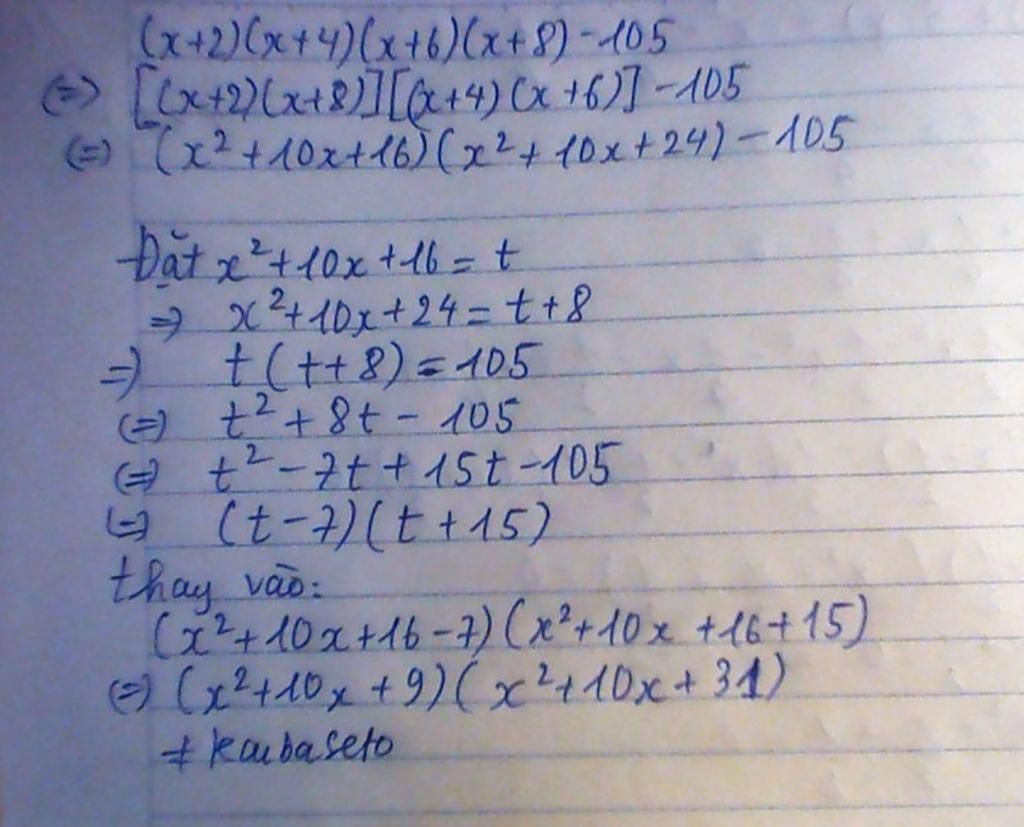 (x+2)(x+4)(x+6)(x+8)-105
(=) [(x+2)(x+8)][(x+4)(x+6)]-105
(=) (x²+10x+16)(x²+10x+24)-105
Đặt x²+10x+16=t
=> x²+10x+24=t+8
=) t(t+8)=105
(=) t²+8t-105
(=) t²-7t+15t-105
(=) (t-7)(t+15)
thay vào:
(x²+10x+16-7)(x²+10x+16+15)
(=) (x²+10x+9)(x²+10x+31)